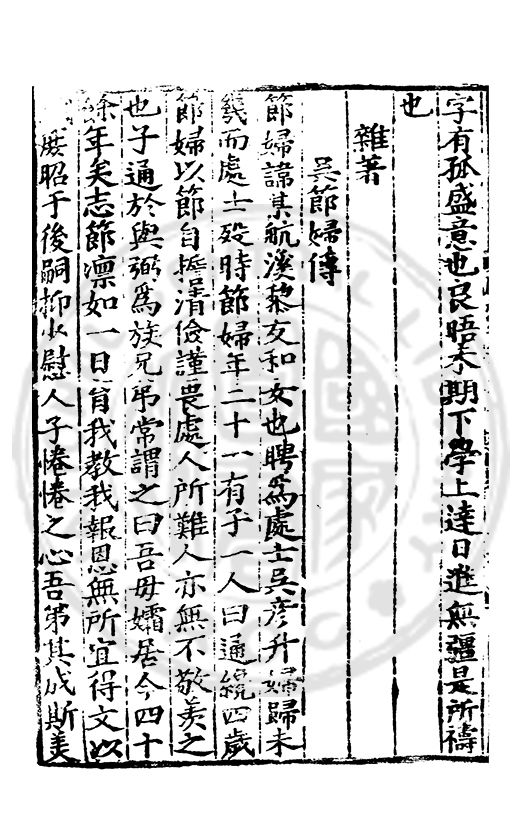 字有孤盛意也良晤未期下學上達日進無疆是所禱
也
雜著
吳節婦傳
節婦諱某航溪黎友和女也聘為處士吳彥升婦歸未
幾而處士歿時節婦年二十一有子一人曰通纔四歲
節婦以節自擔清儉謹畏處人所難人亦無不敬羨之
也子通於與弼為族兄弟常謂之曰吾母孀居今四十
餘年矣志節凛如一日育我教我報恩無所宜得文以
昭于後嗣抑少慰人子惓惓之心吾第其成斯美